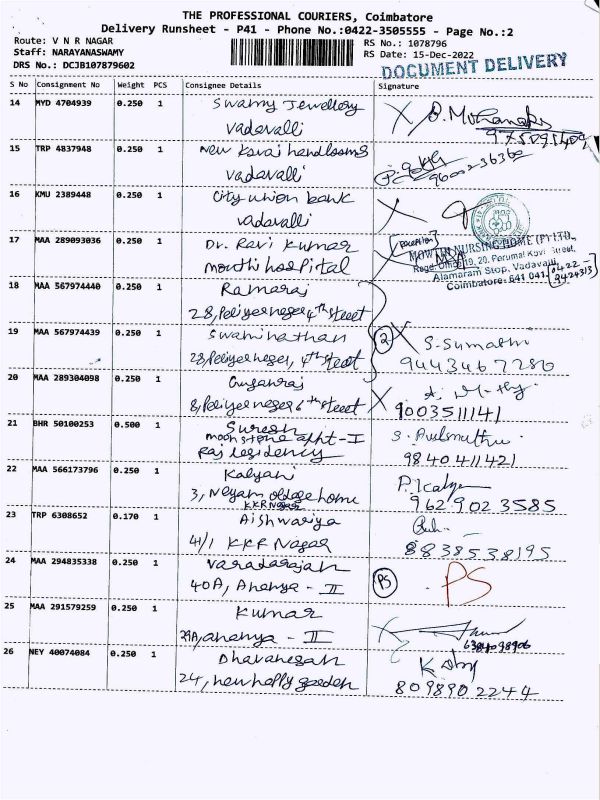 THE PROFESSIONAL COURIERS, Coimbatore
Delivery Runsheet - P41 - Phone No.:0422-3505555 - Page No.:2
Route: V N R NAGAR
RS No.: 1078796
Staff: NARAYANASWAMY
RS Date: 15-Dec-2022
DRS No.: DCJB107879602
DOCUMENT DELIVERY
S No Consignment No Weight PCS Consignee Details Signature
14 MYD 4704939 0.250 1 Swamy Jewellery
vadavalli
15 TRP 4837948 0.250 1 New handlooms
vadavalli 9600236360
16 KMU 2389448 0.250 1 City union bank
vadavalli
17 MAA 289093036 0.250 1 Dr. Ravi Kumar
mouthi hospital
MOWTHI NURSING HOME (P) LTD.,
19, 20, Perumal Kovi Street,
Alamaram Stop, Vadavalli,
Coimbatore- 641 041. 0422-
2424313
18 MAA 567974440 0.250 1 Ramaraj
28, Peliyernager 4th street
19 MAA 567974439 0.250 1 Swaminathan 2 S. Sumathi
28, Peliyernager, 4th street 9443467280
20 MAA 289304098 0.250 1
8, Peliyernager 6th street 9003511141
21 BHR 50100253 0.500 1 Suresh
moon stone apht-I
Raj residency 9840411421
22 MAA 566173796 0.250 1 Kalyani
3, oldage home 9629023585
KKR Nagar
23 TRP 6308652 0.170 1 Aishwariya
41/1 KKR Nagar 8838538195
24 MAA 294835338 0.250 1 Varadarajan PS PS
40A, Ananya - II
25 MAA 291579259 0.250 1 Kumar
39A, ananya - II 6384098906
26 NEY 40074084 0.250 1 Dhavanesan
24, new holly garden 8098902244